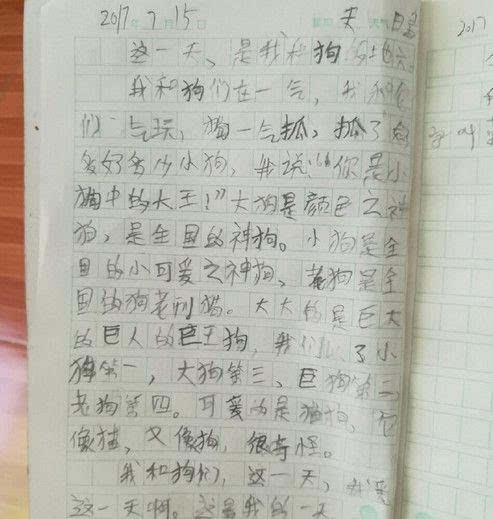 2017年7月15日 星期 天 天气
这一天，是我和狗
我和狗们在一气，我和它
们一气玩，狗一气抓，抓了
多好多少小狗，我说：“你是小
狗中的大王！”大狗是颜色之神
狗，是全国的神狗。小狗是全
国的小可爱之神狗，老狗是全
国的狗老刑猫。大大的是巨大
的巨人的巨王狗，我们 了小
狗第一，大狗第三、巨狗第二
老狗第四。可爱的是猫狗，它
像猫，又像狗，很奇怪。
我和狗们，这一天，我爱
这一天啊。这是我的一天
2017